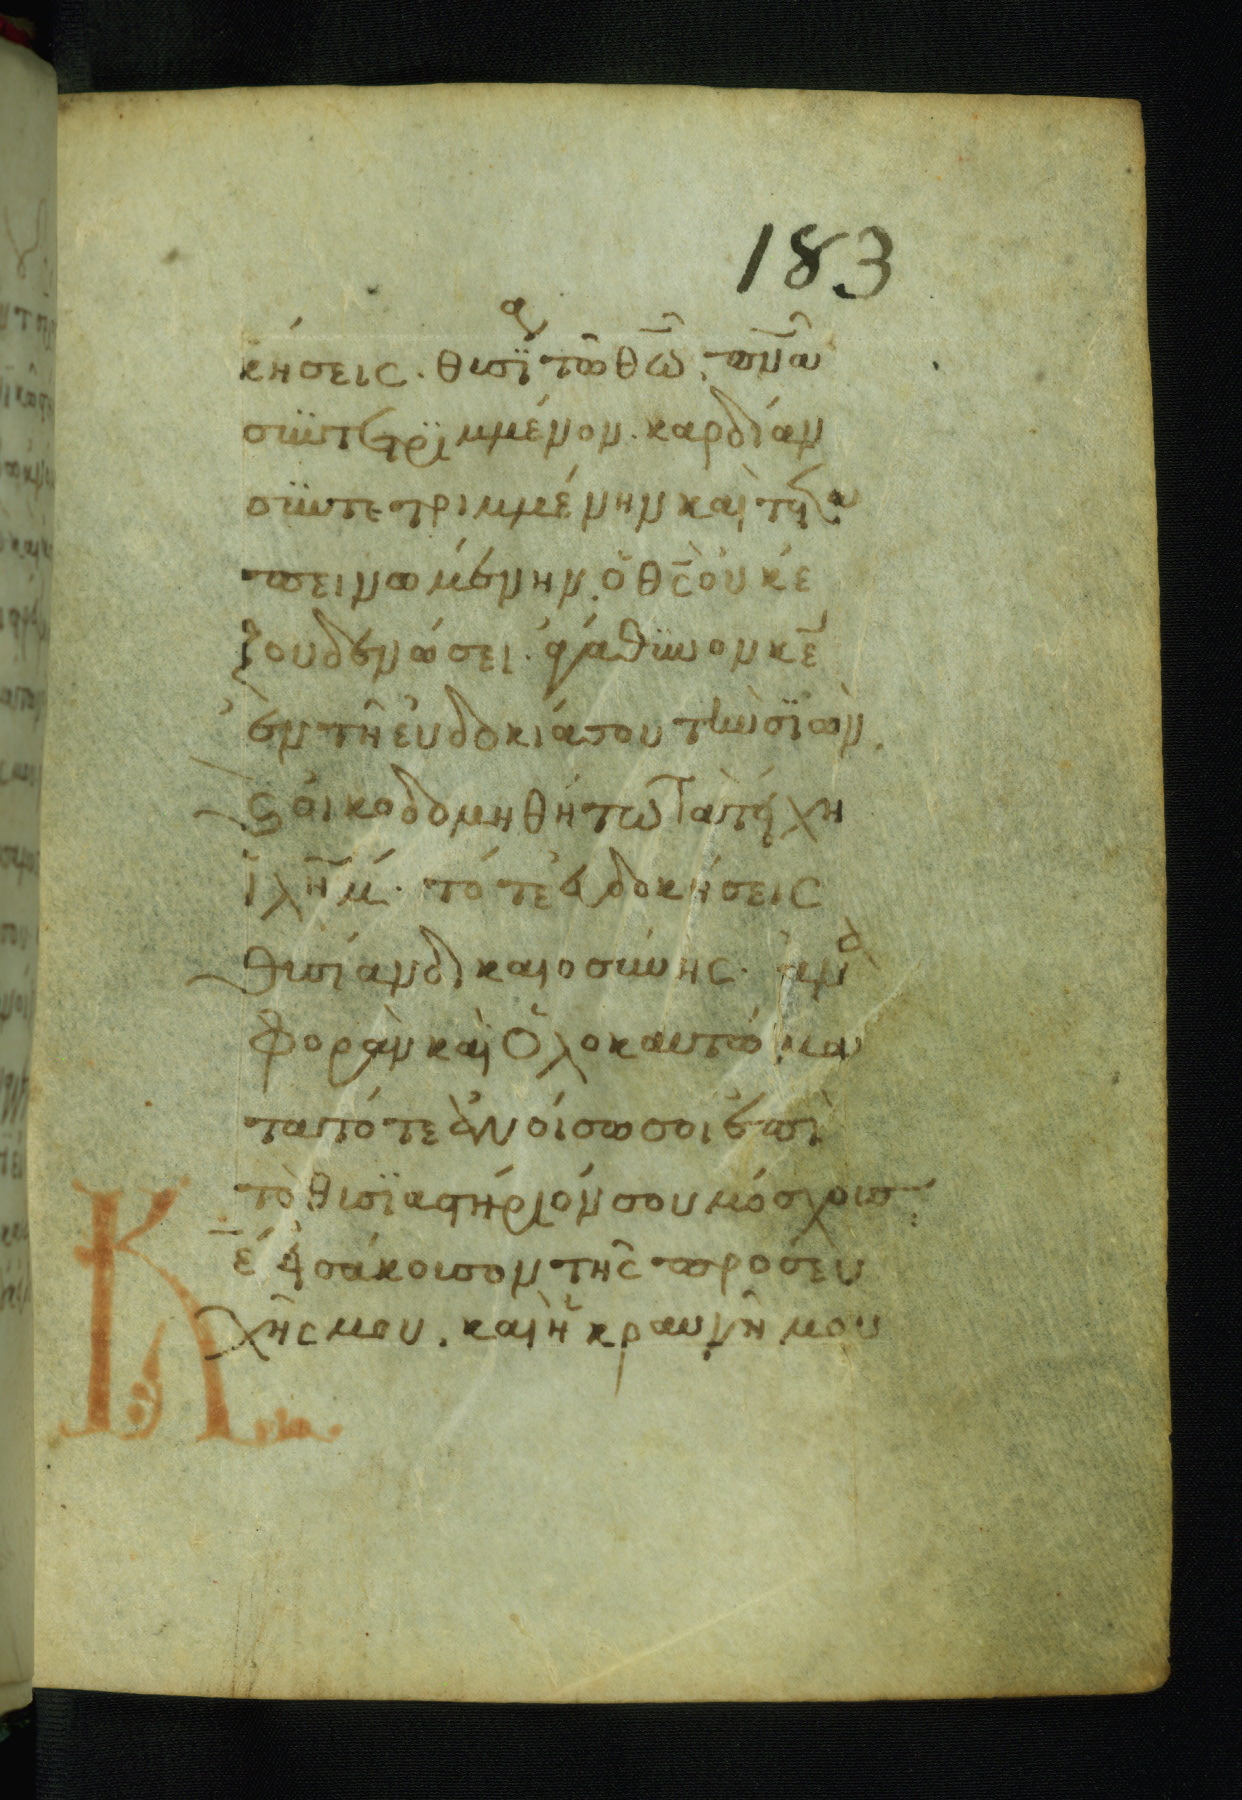 183
κήσεις. θυσΐα τῶ θω̅. πν̅α
συντετριμμένον. καρδίαν
συντετριμμένην καὶ τετα
πεινωμένην. ὁ θς̅ οὐκ ἐ
ξουδενώσει. ἀγάθϋνον κε̅
ἐν τῆ εὐδοκία σου τὴν σϊὼν.
ς οἰκοδομηθήτω τὰ τείχη
ϊλη̅μ. τότε εὐδοκήσεις
θυσίαν δικαιοσύνης. ἀνα
φορὰν καὶ ὁλοκαυτώμα
τα τότε ἀνοίσωσοι ἐπὶ
τὸ θυσϊαστήριόν σου μόσχους
Κε̅ εἰσάκουσον τῆς προσευ
χῆς μου. καὶ ἡ κραυγή μου